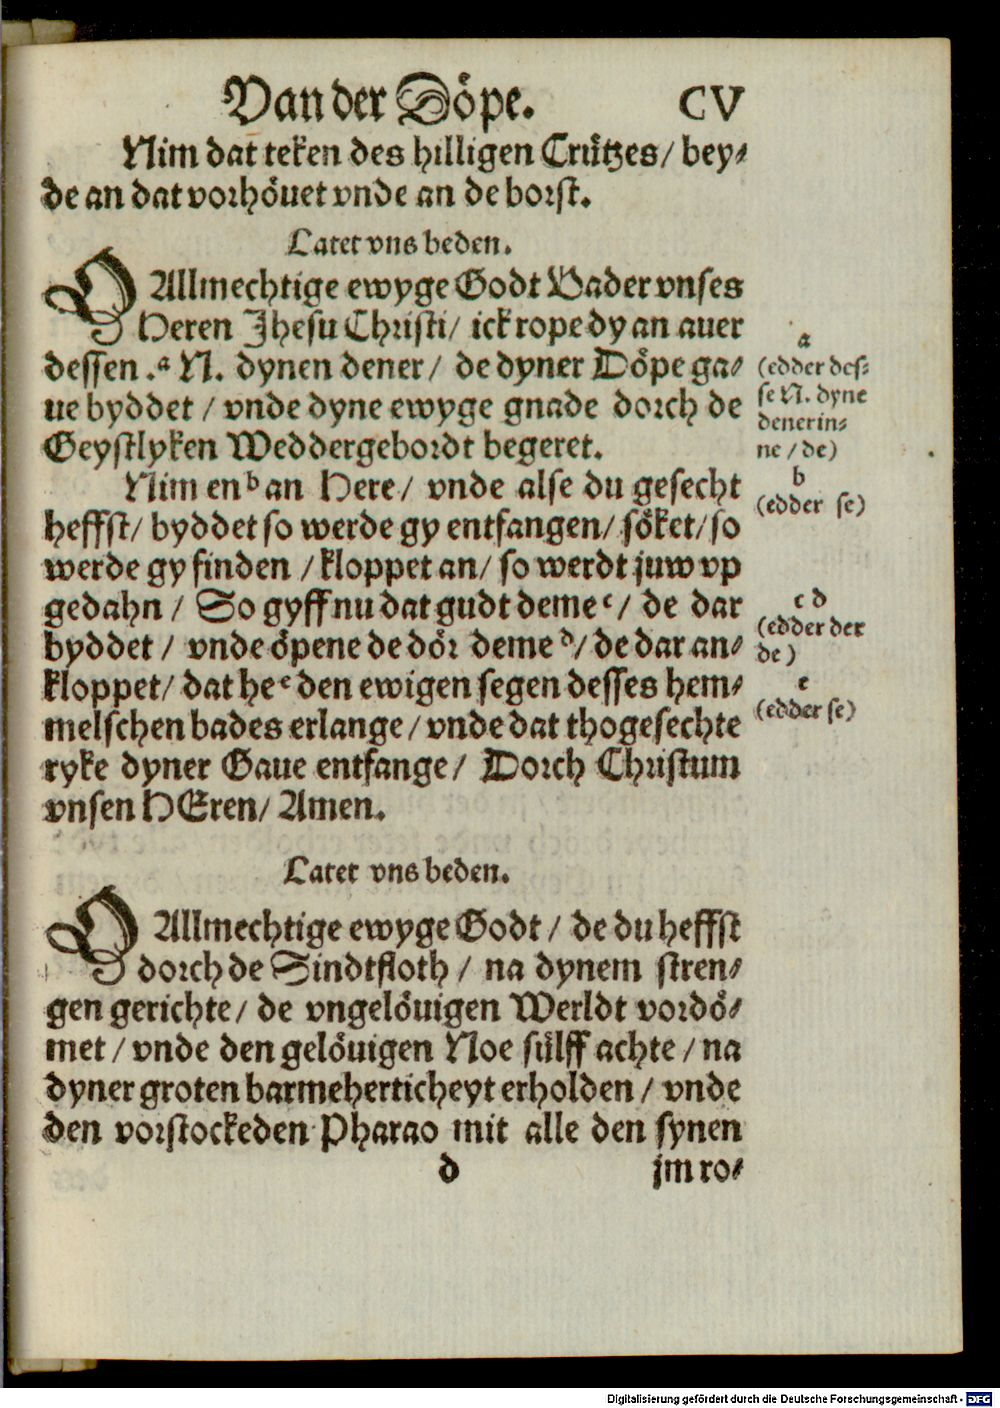 Van der Döpe. CV
Nim dat teken des hilligen Crützes/ bey⸗
de an dat vorhöuet vnde an de borst.
Latet vns beden.
O Allmechtige ewyge Godt Vader vnses
Heren Jhesu Christi/ ick rope dy an auer
dessen .ᵃ N. dynen dener/ de dyner Döpe ga⸗
ue byddet / vnde dyne ewyge gnade dorch de
Geystlyken Weddergebordt begeret.
Nim en ᵇ an Here/ vnde alse du gesecht
heffst/ byddet so werde gy entfangen/ söket/ so
werde gy finden / kloppet an/ so werdt juw vp
gedahn / So gyff nu dat gudt deme ᶜ/ de dar
byddet / vnde öpene de dör deme ᵈ/ de dar an⸗
kloppet/ dat he ᵉ den ewigen segen desses hem⸗
melschen bades erlange/ vnde dat thogesechte
ryke dyner Gaue entfange/ Dorch Christum
vnsen HEren/ Amen.
a
(edder des⸗
se N. dyne
denerin⸗
ne / de)
b
(edder se)
c d
(edder der
de)
e
(edder se)
Latet vns beden.
O Allmechtige ewyge Godt / de du heffst
dorch de Sindtfloth / na dynem stren⸗
gen gerichte/ de vngelöuigen Werldt vordö⸗
met / vnde den gelöuigen Noe sülff achte / na
dyner groten barmeherticheyt erholden / vnde
den vorstockeden Pharao mit alle den synen
d jm ro⸗
Digitalisierung gefördert durch die Deutsche Forschungsgemeinschaft - DFG